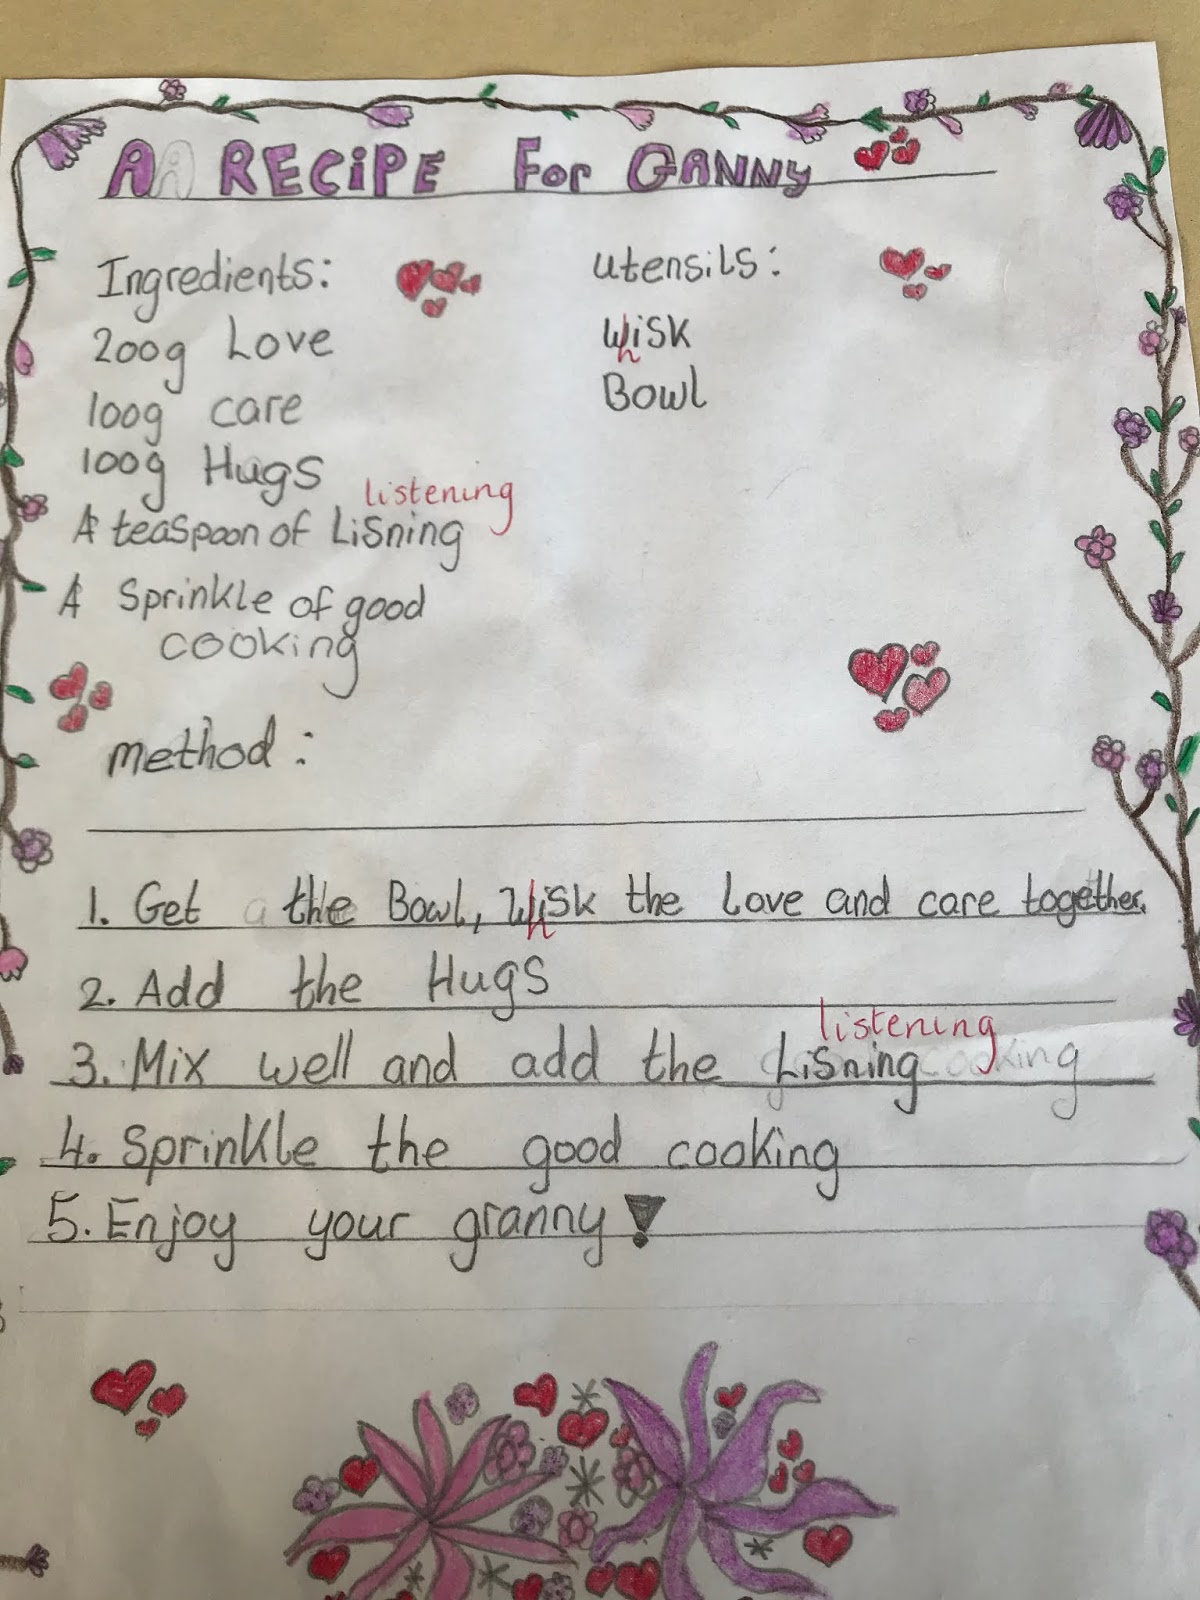 A RECiPE For GANNY
Ingredients:
200g Love
100g care
100g Hugs
listening
A teaspoon of Lisning
A Sprinkle of good
cooking
utensils:
Whisk
Bowl
method:
1. Get the Bowl, Whisk the Love and care together.
2. Add the Hugs
listening
3. Mix well and add the Lisning cooking
4. Sprinkle the good cooking
5. Enjoy your granny!